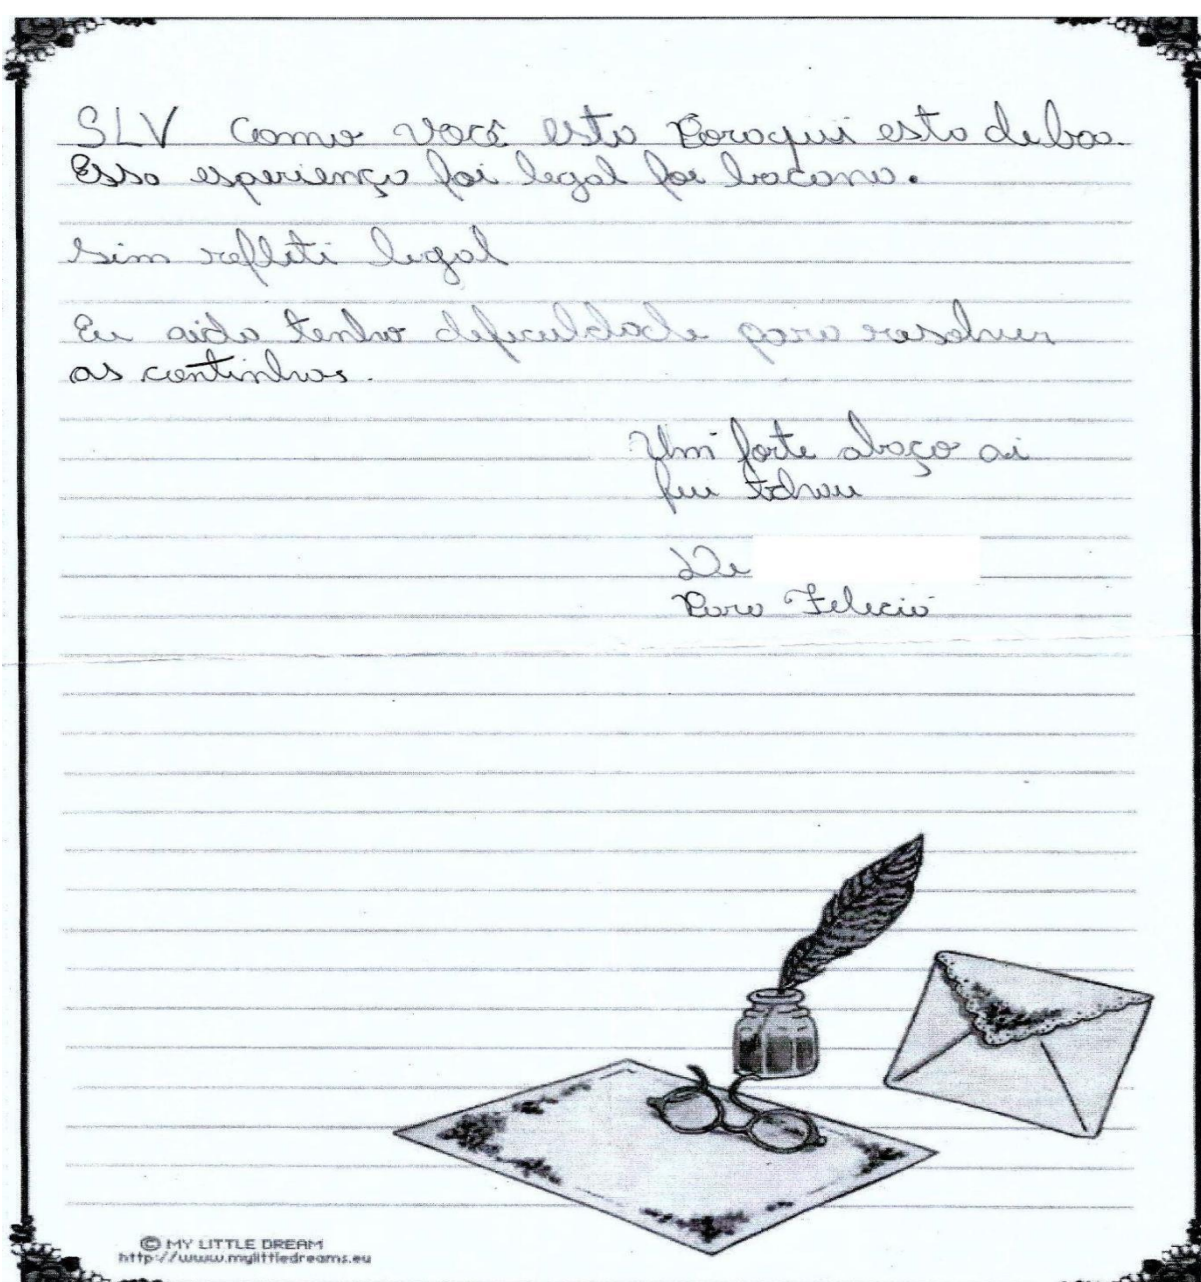 SLV Como você esta Poraqui esta de boa.
Essa esperiença foi legal foi bacana.
Sim refleti legal
Eu aida tenho deficuldade para resolver
as continhas.
Um forte abaço ai
fui tchau
De
Para Felicia
© MY LITTLE DREAM
http://www.mylittledreams.eu